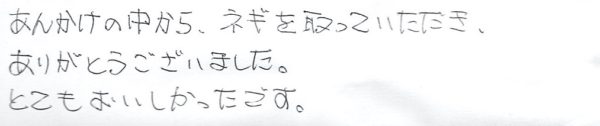 あんかけの中から、ネギを取っていただき、
ありがとうございました。
とてもおいしかったです。